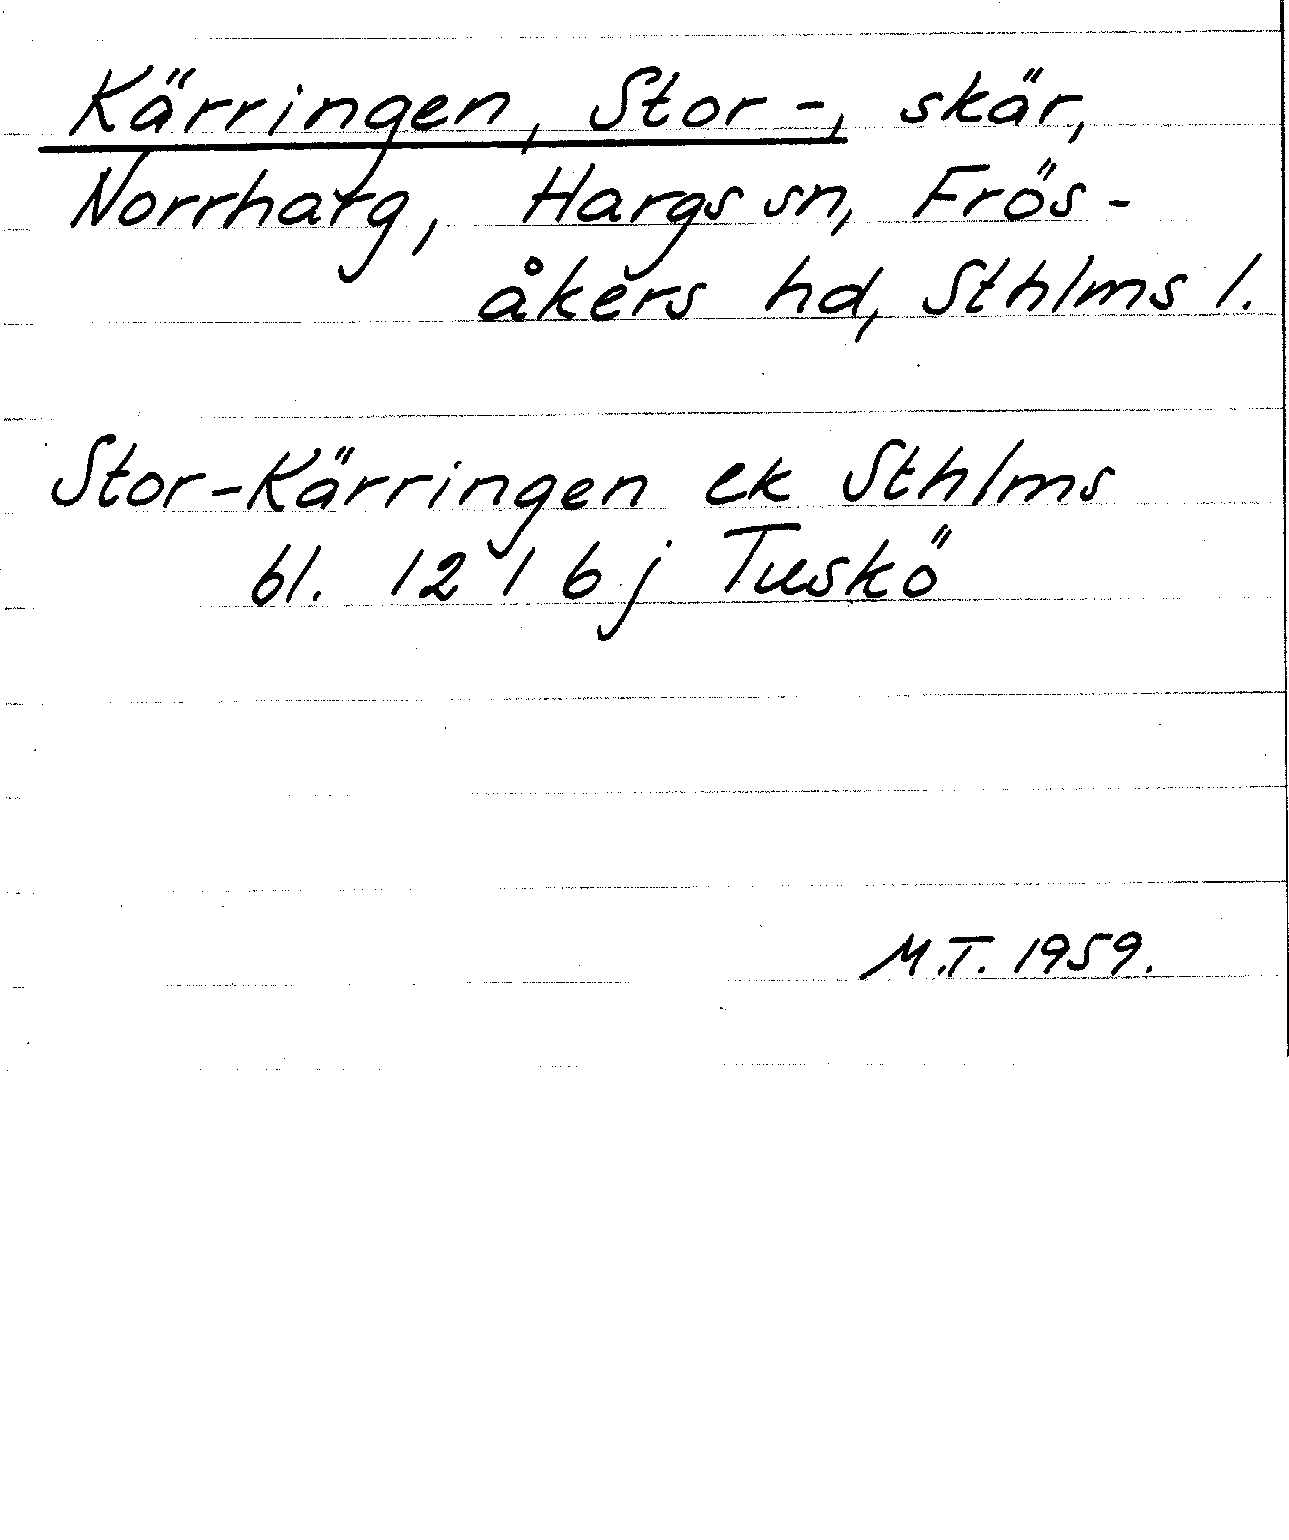 Kärringen, Stor-, skär,
Norrharg, Hargs sn, Frös-
åkers hd, Sthlms l.
Stor-Kärringen ek Sthlms
bl. 12 I 6 j Tuskö
M.T. 1959.